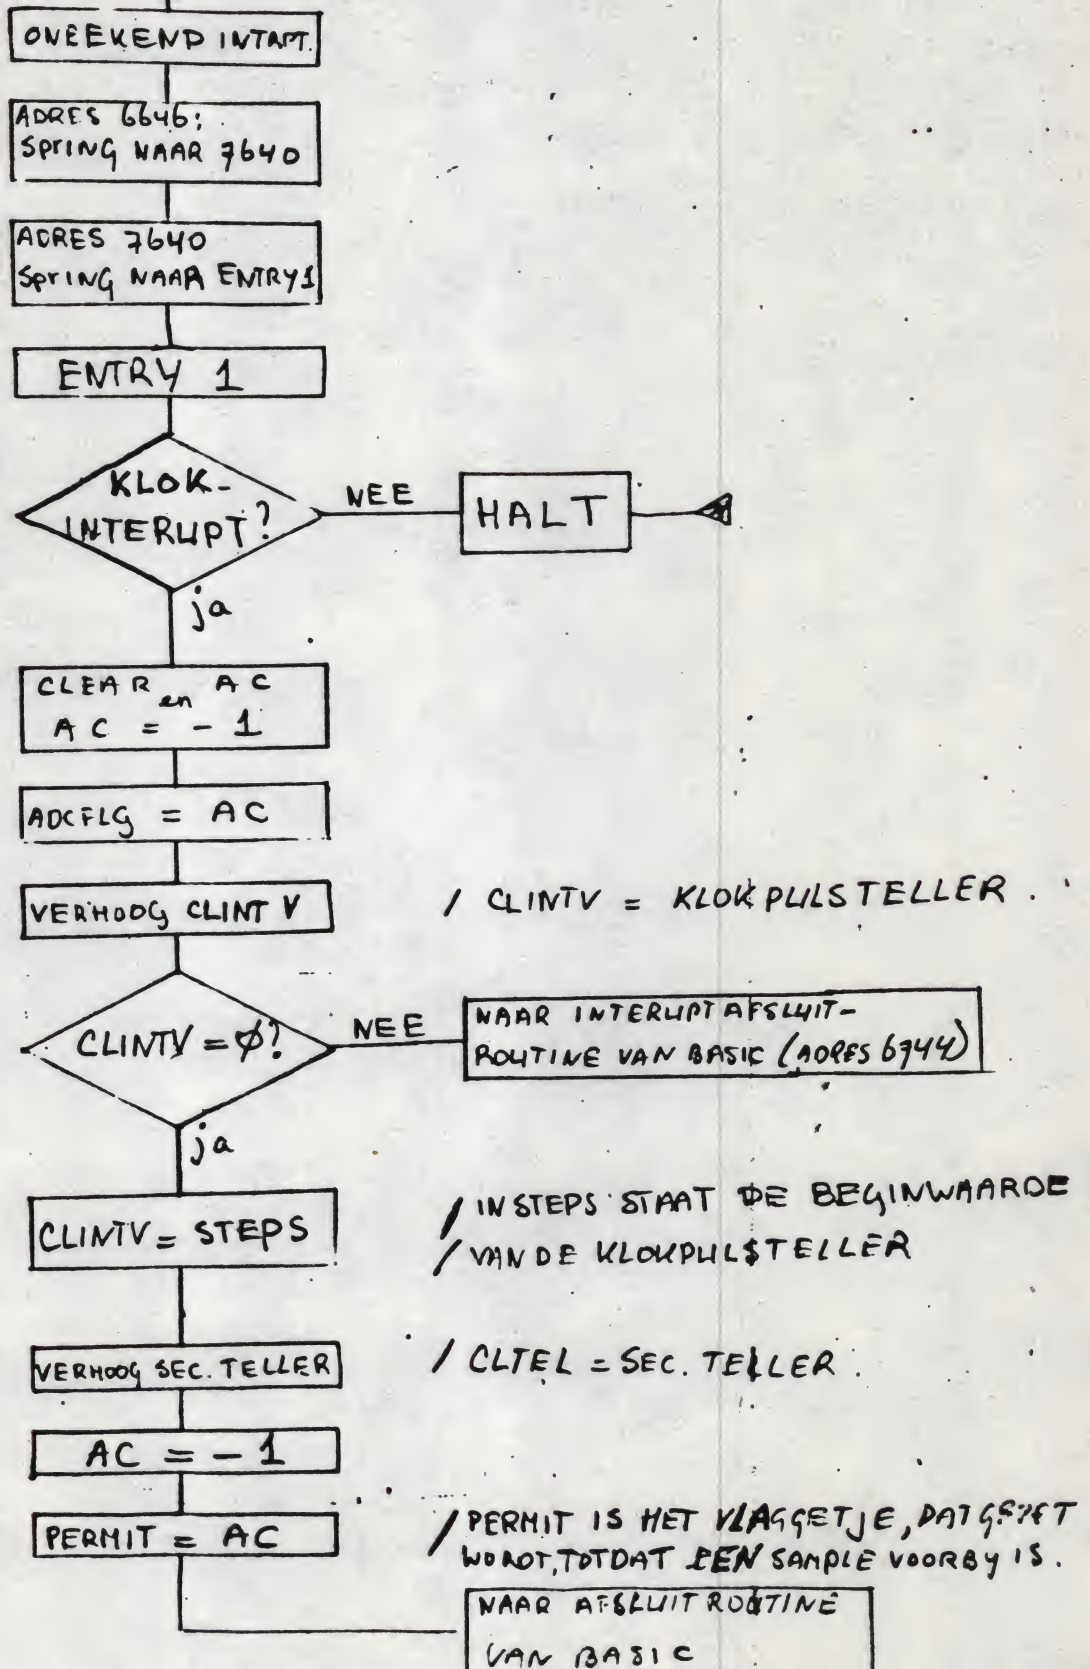 ONBEKEND INTRPT.
ADRES 6646;
SPRING NAAR 7640
ADRES 7640
SPRING NAAR ENTRY1
ENTRY 1
KLOK-
INTERUPT?
NEE
HALT
ja
CLEAR en AC
AC = - 1
ADCFLG = AC
VERHOOG CLINTV
/ CLINTV = KLOKPULSTELLER.
CLINTV = Ø?
NEE
NAAR INTERUPTAFSLUIT-
ROUTINE VAN BASIC (ADRES 6744)
ja
CLINTV = STEPS
/ IN STEPS STAAT DE BEGINWAARDE
/ VAN DE KLOKPULSTELLER
VERHOOG SEC. TELLER
/ CLTEL = SEC. TELLER.
AC = - 1
PERMIT = AC
/ PERMIT IS HET VLAGGETJE, DAT GEZET
WORDT, TOTDAT EEN SAMPLE VOORBY IS.
NAAR AFSLUITROUTINE
VAN BASIC